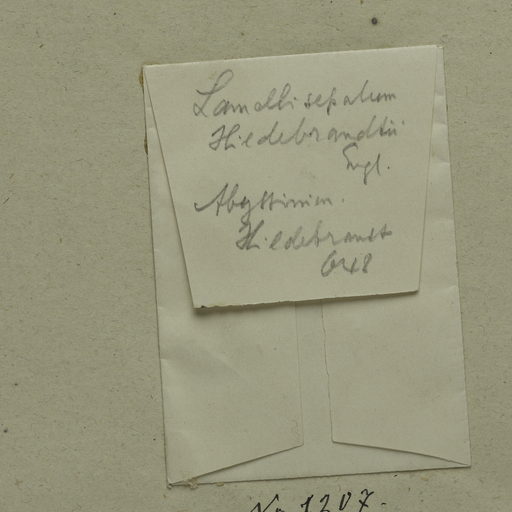 Lamellisepalum
Hildebrandtii
Engl.
Abyssinien.
Hildebrandt
648
No 1207.